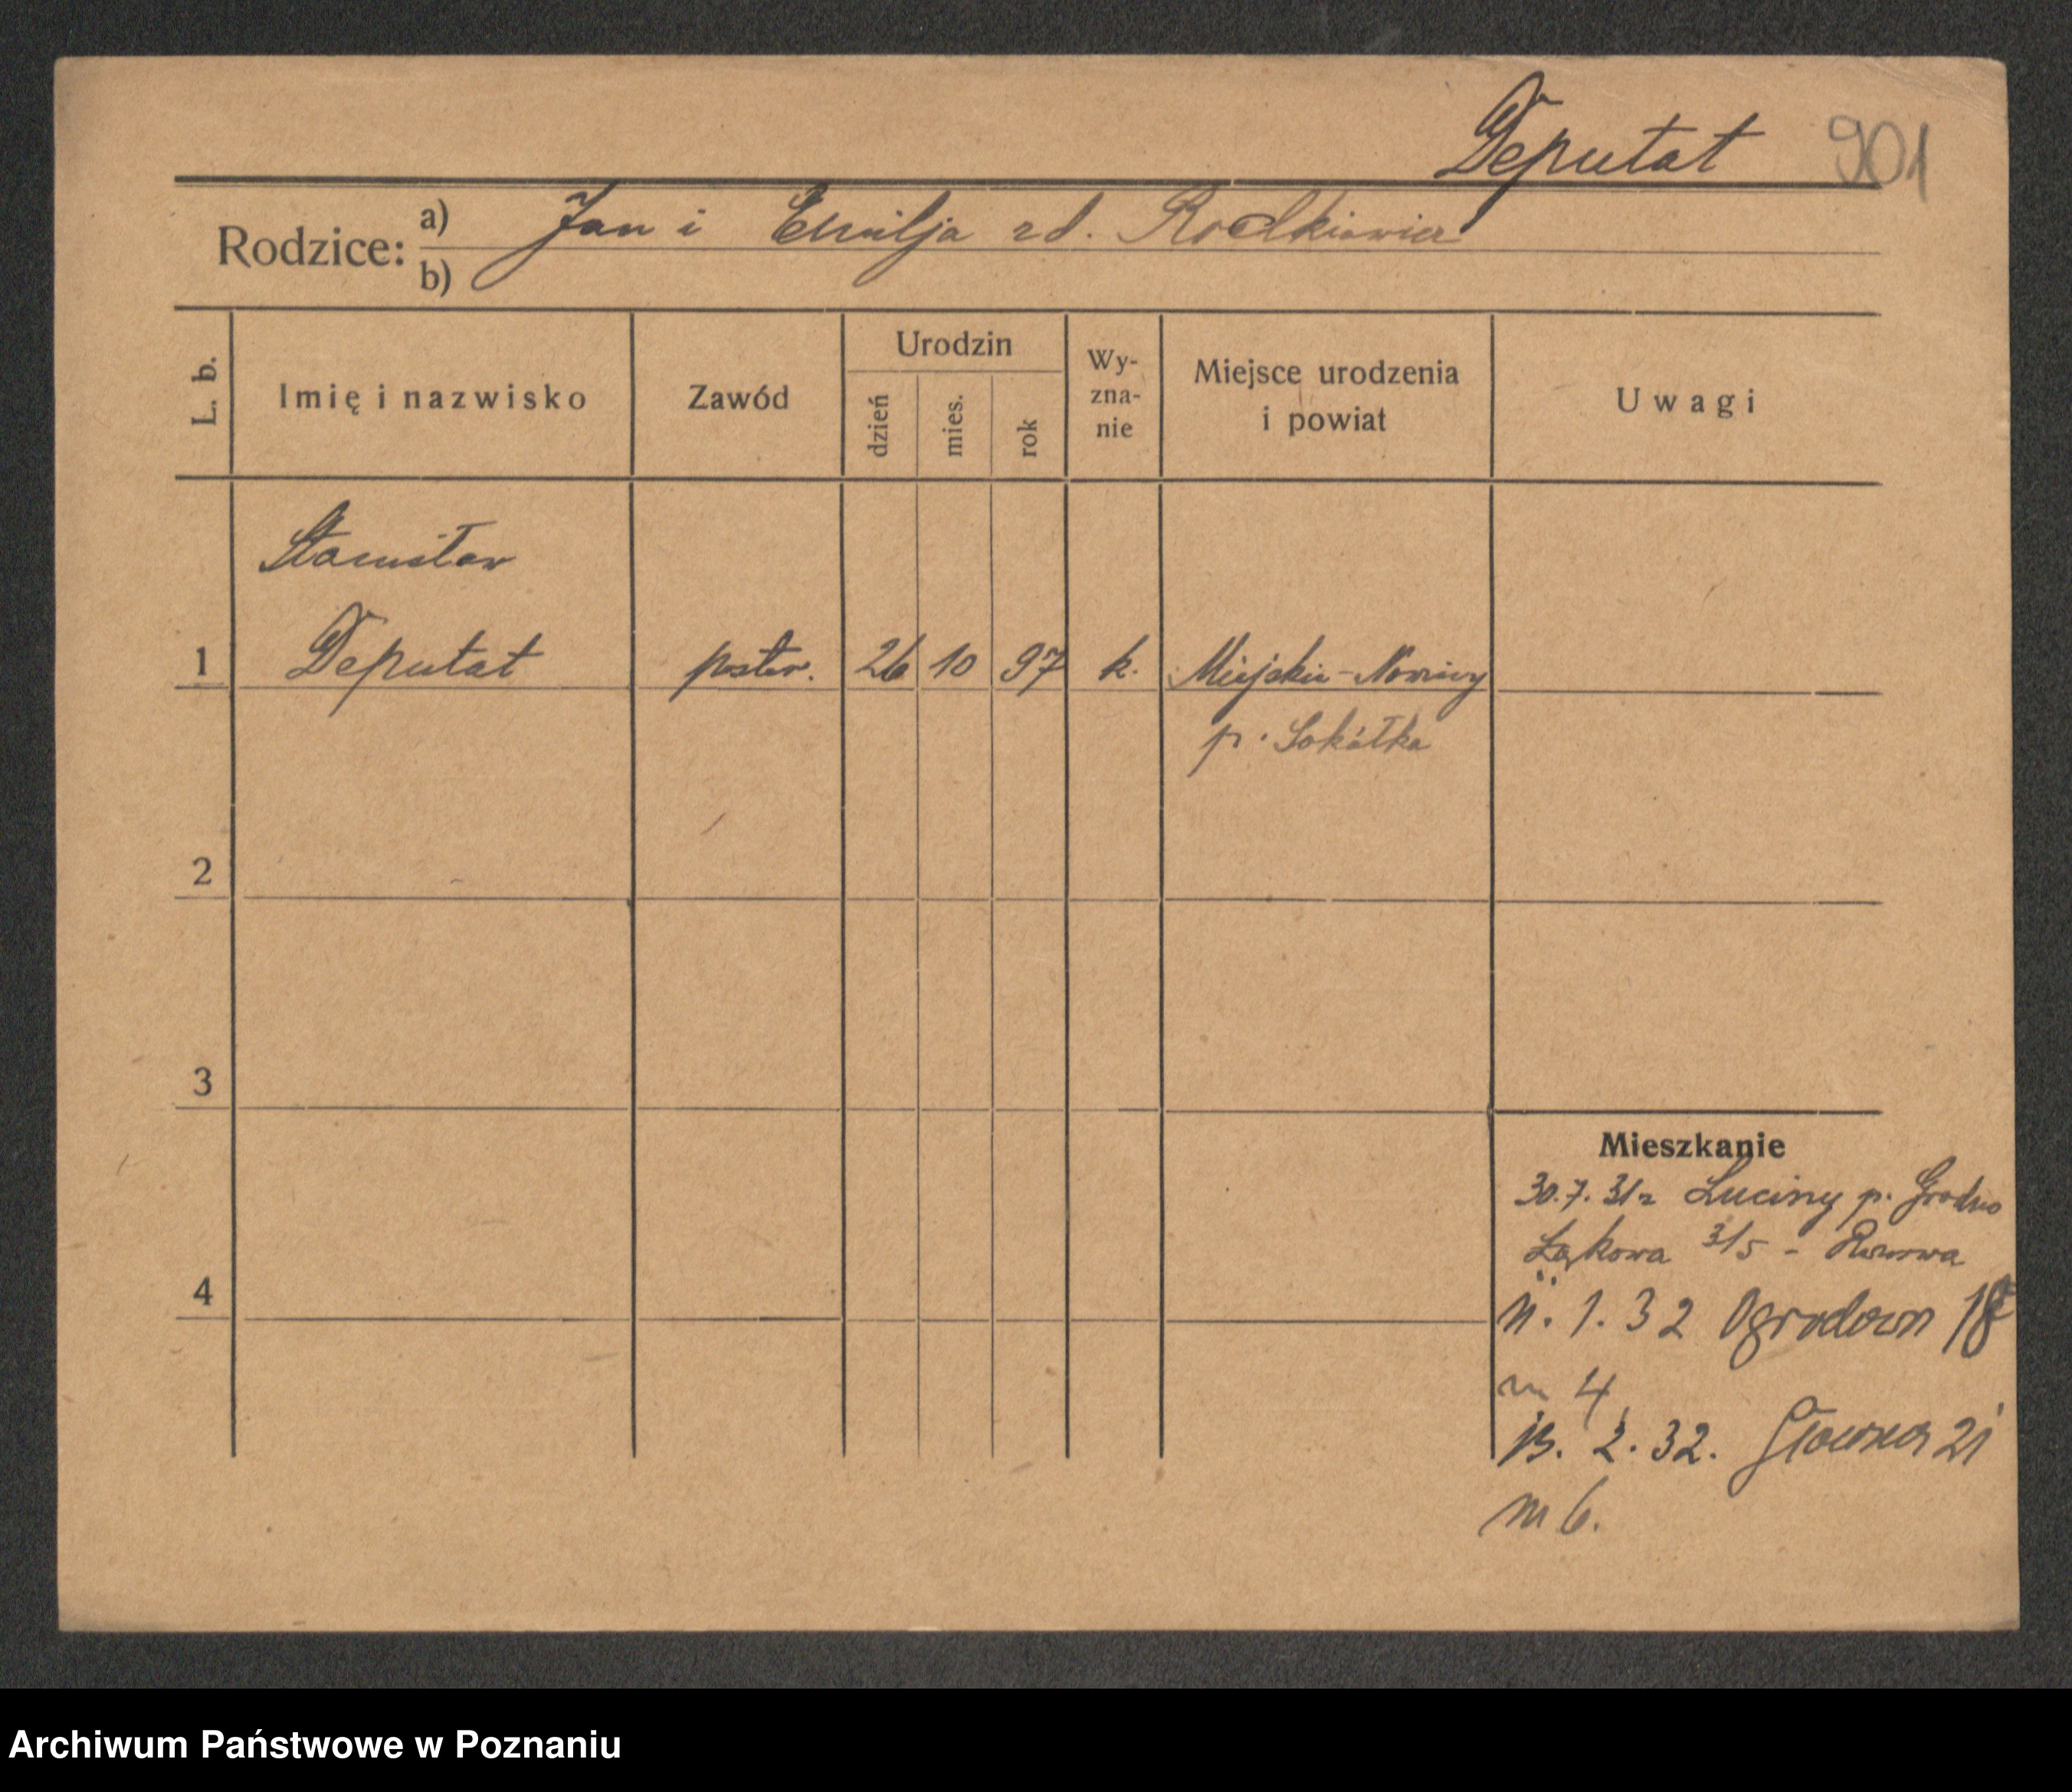 Deputat 901
Rodzice: a) Jan i Emilja zd. Rodkiewicz
b)
L. b. Imię i nazwisko Zawód Urodzin dzień mies. rok Wy-zna-nie Miejsce urodzenia i powiat Uwagi
Stanisław
1 Deputat poster. 26 10 97 k. Miejskie-Nowiny
p. Sokółka
2
3
Mieszkanie
30.7.31 z p. Grodno
Łąkowa 3/5 -
4
1.32 Ogrodowa 18
m 4
2.32. Główna 21
m 6.
Archiwum Państwowe w Poznaniu